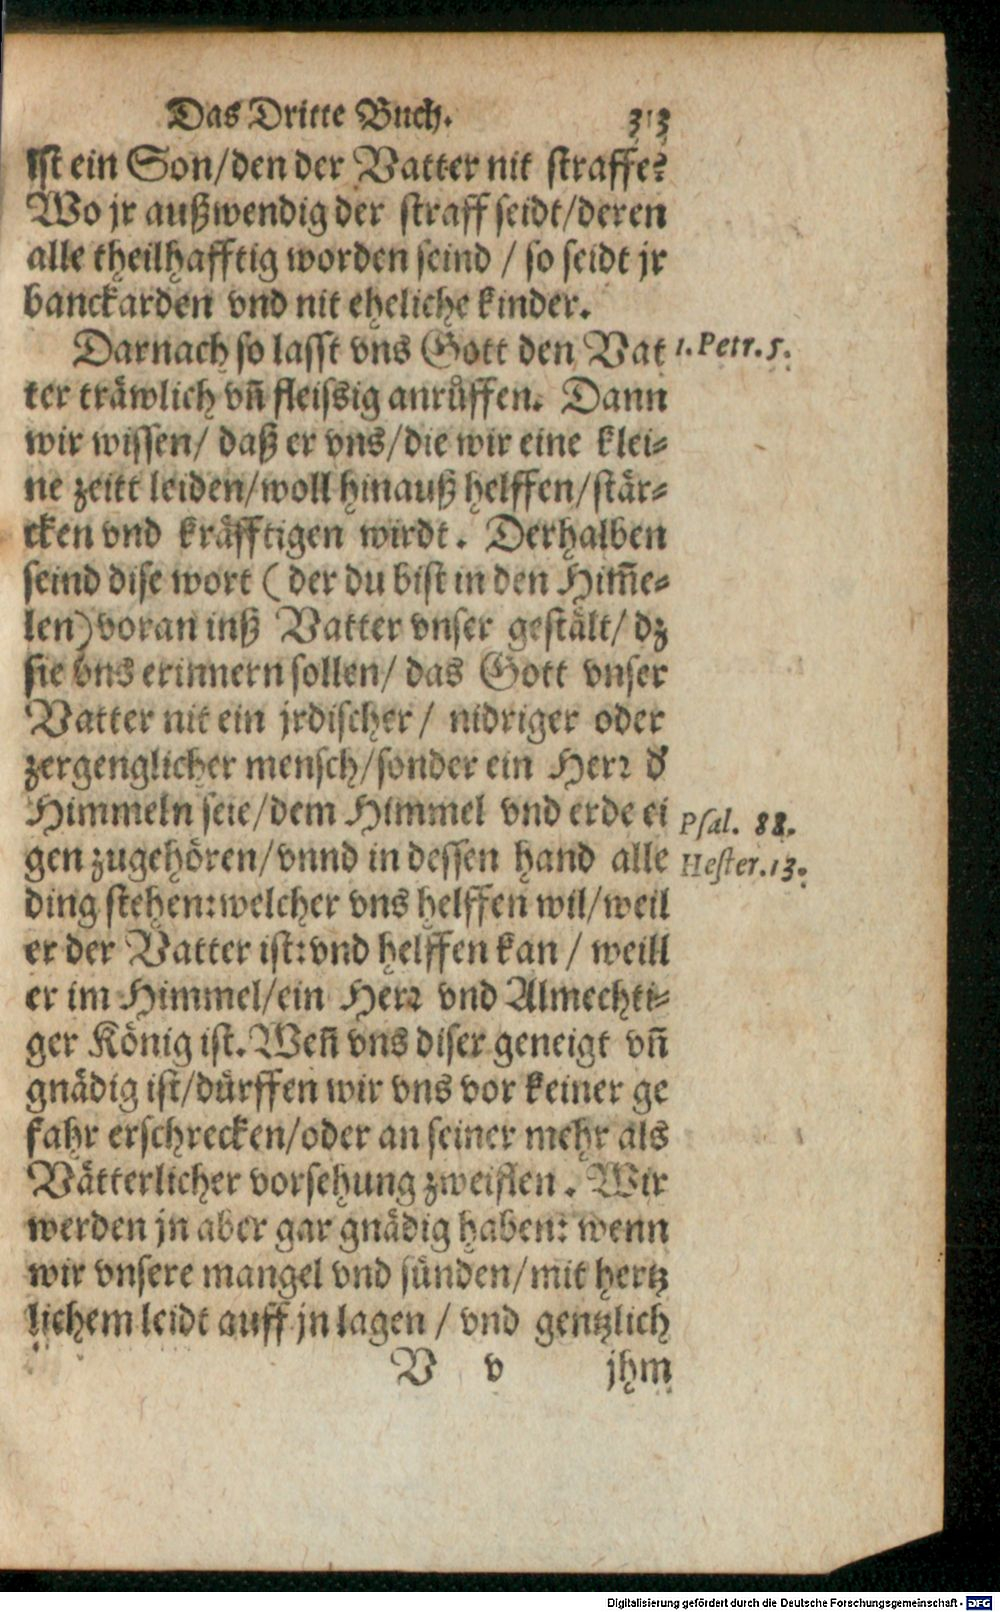 Das Dritte Buch. 313
ist ein Son/den der Vatter nit straffe?
Wo jr außwendig der straff seidt/deren
alle theilhafftig worden seind / so seidt jr
banckarden vnd nit eheliche kinder.
Darnach so lasst vns Gott den Vat
1. Petr. 5.
ter träwlich vñ fleissig anrůffen. Dann
wir wissen/ daß er vns/die wir eine klei⸗
ne zeitt leiden/woll hinauß helffen/stär⸗
cken vnd kräfftigen wirdt. Derhalben
seind dise wort (der du bist in den Him̃e⸗
len) voran inß Vatter vnser gestält/ dz
sie vns erinnern sollen/ das Gott vnser
Vatter nit ein jrdischer/ nidriger oder
zergenglicher mensch/sonder ein Herr d'
Himmeln seie/dem Himmel vnd erde ei
Psal. 88.
gen zugehören/vnnd in dessen hand alle
Hester. 13.
ding stehen: welcher vns helffen wil/weil
er der Vatter ist: vnd helffen kan / weill
er im Himmel/ein Herr vnd Almechti⸗
ger König ist. Weñ vns diser geneigt vñ
gnädig ist/dürffen wir vns vor keiner ge
fahr erschrecken/oder an seiner mehr als
Vätterlicher vorsehung zweiflen. Wir
werden jn aber gar gnädig haben: wenn
wir vnsere mangel vnd sünden/mit hertz
lichem leidt auff jn lagen / vnd gentzlich
V v jhm
Digitalisierung gefördert durch die Deutsche Forschungsgemeinschaft - DFG